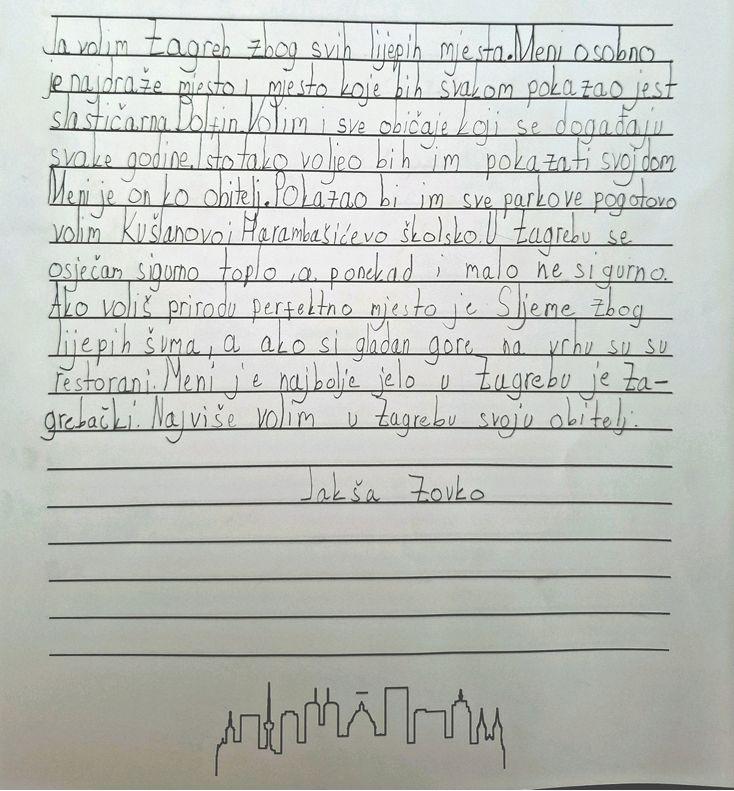 Ja volim Zagreb zbog svih lijepih mjesta. Meni osobno
je najdraže mjesto i mjesto koje bih svakom pokazao jest
slastičarna Dolfin. Volim i sve običaje koji se događaju
svake godine. Isto tako voljeo bih im pokazati svoj dom
Meni je on ko obitelj. Pokazao bi im sve parkove pogotovo
volim Kušlanovo i Harambašićevo školsko. U Zagrebu se
osječam sigurno toplo, a ponekad i malo ne sigurno.
Ako voliš prirodu perfektno mjesto je Sljeme zbog
lijepih šuma, a ako si gladan gore na vrhu su su
restorani. Meni je najbolje jelo u Zagrebu je Za-
grebački. Najviše volim u Zagrebu svoju obitelj.
Jakša Zovko